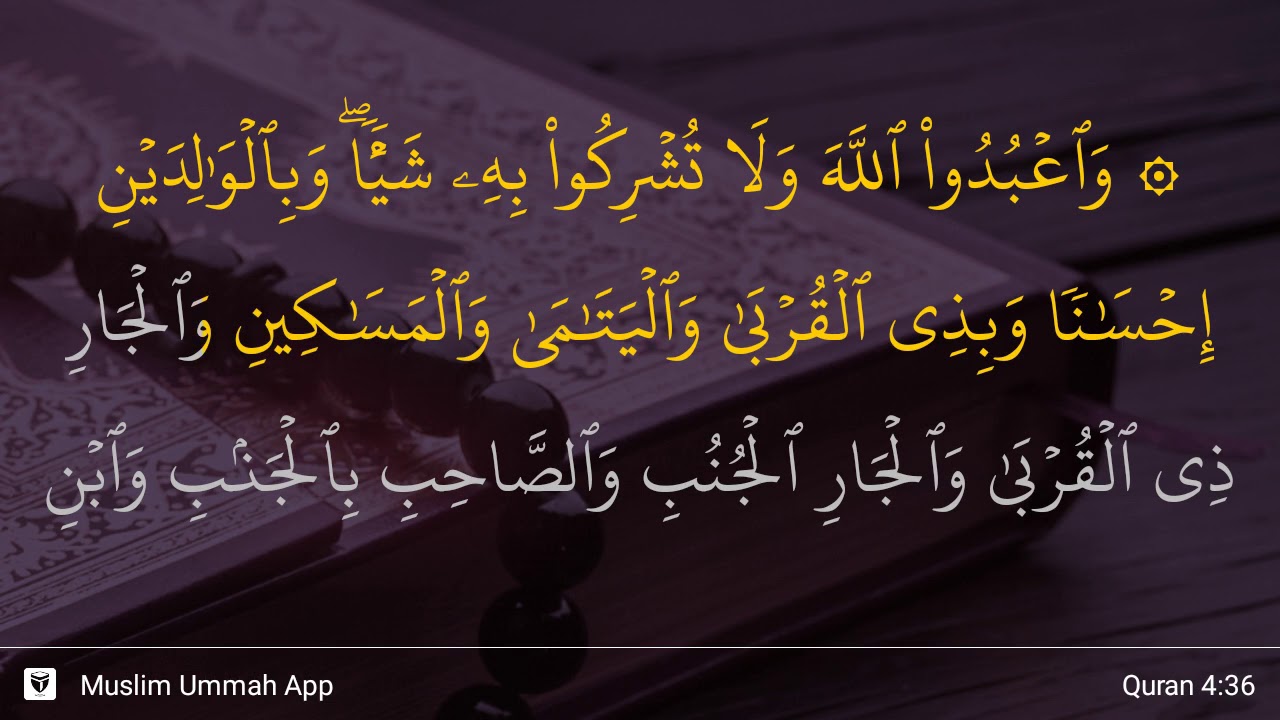 ۞ وَٱعۡبُدُواْ ٱللَّهَ وَلَا تُشۡرِكُواْ بِهِۦ شَيۡـٔٗاۖ وَبِٱلۡوَٰلِدَيۡنِ
إِحۡسَٰنٗا وَبِذِي ٱلۡقُرۡبَىٰ وَٱلۡيَتَٰمَىٰ وَٱلۡمَسَٰكِينِ وَٱلۡجَارِ
ذِي ٱلۡقُرۡبَىٰ وَٱلۡجَارِ ٱلۡجُنُبِ وَٱلصَّاحِبِ بِٱلۡجَنۢبِ وَٱبۡنِ
Muslim Ummah App
Quran 4:36